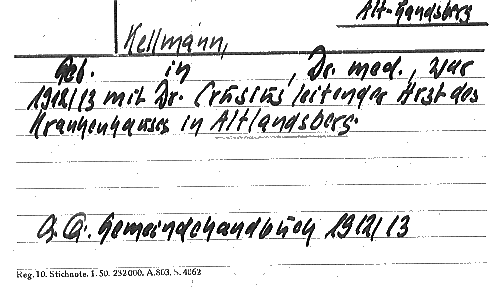 Alt-Landsberg
Kellmann,
Geb. in , Dr. med., war
1912/13 mit Dr. Crusius leitender Arzt des
Krankenhauses in Altlandsberg.
Gemeindehandbuch 1912/13
Reg. 10. Stichnote. I. 50. 232000. A.803. S. 4062